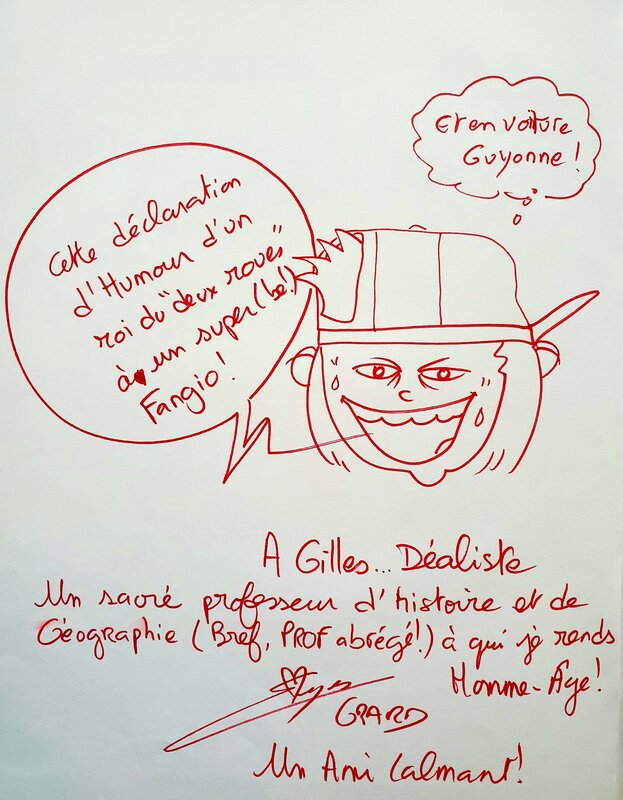 Et en voiture
Guyonne !
Cette déclaration
d'Humour d'un
roi du "deux roues"
à un super(be!)
Fangio !
A Gilles... Déaliste
Un sacré professeur d'histoire et de
Géographie (Bref, PROF abrégé!) à qui je rends
Homme-Âge!
GRARD
Un Ami Calmant!